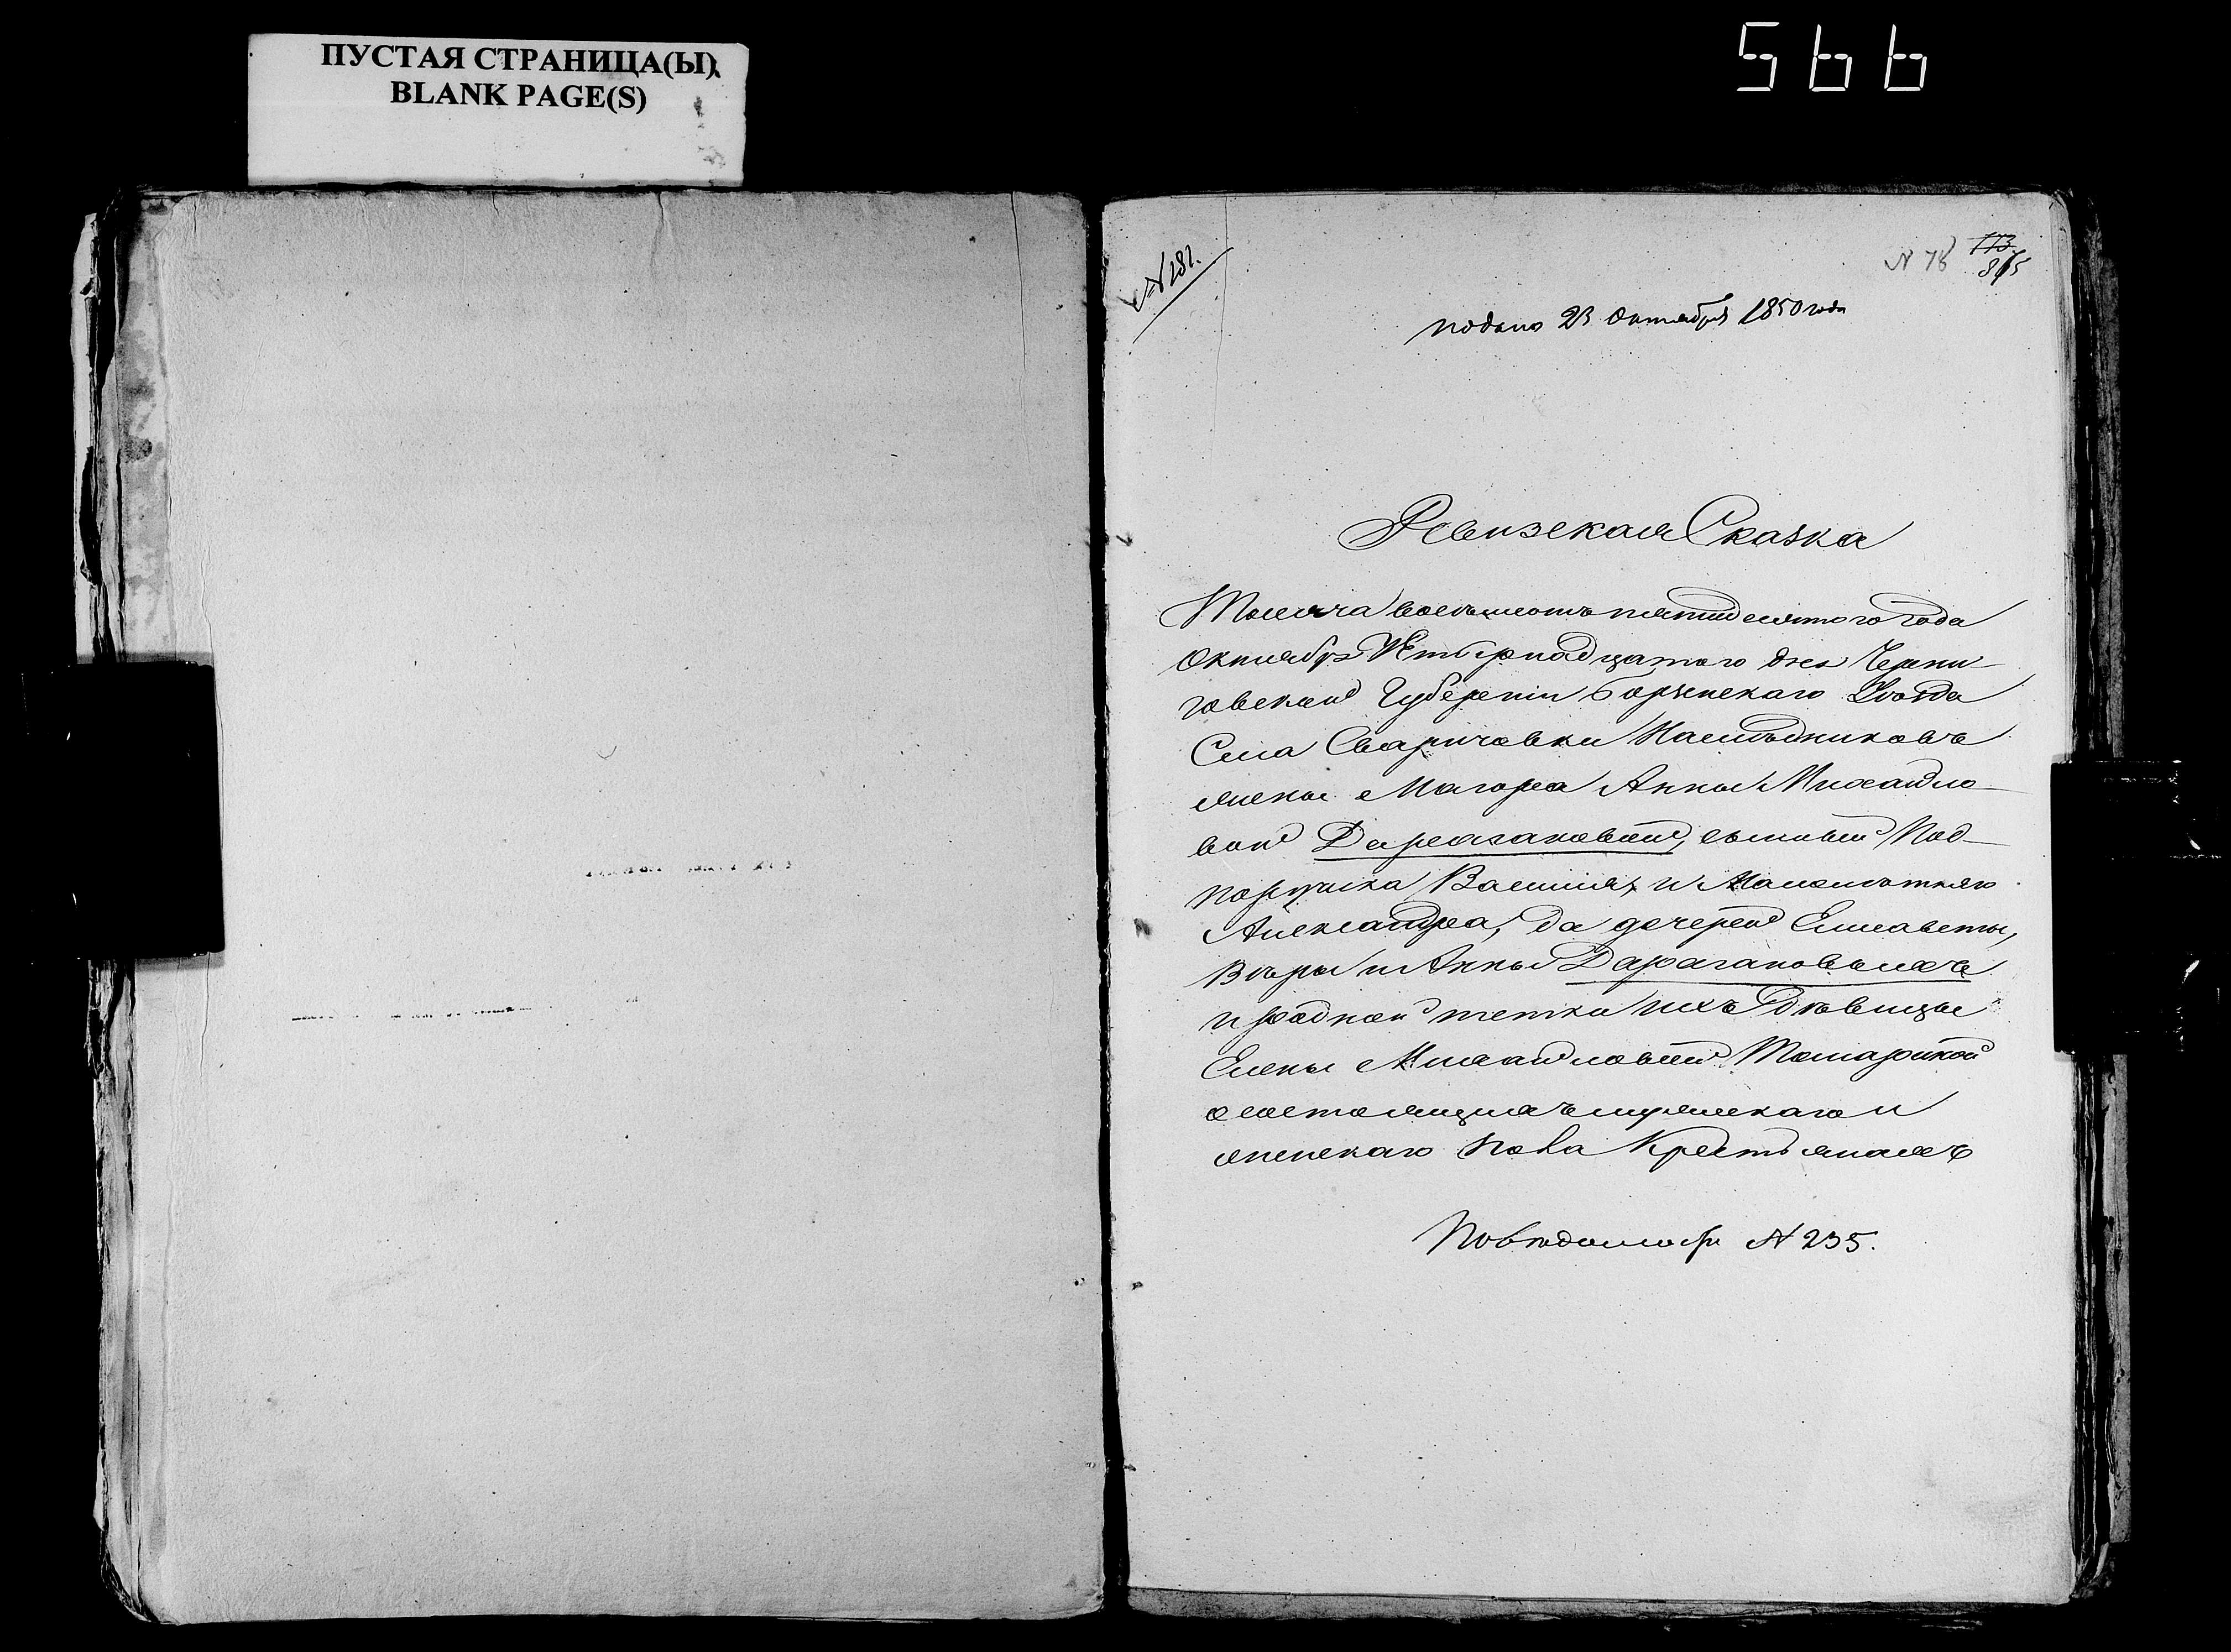 ПУСТАЯ СТРАНИЦА(Ы)
BLANK PAGE(S)
566
№ 281.
№ 78 173
815
подано 23 Октября 1850 года
Ревизская Сказка
Тысяча восемьсотъ пятидесятого года
Октября Четвернадцатого дня Черни-
говской Губерніи Борзенскаго Уѣзда
Села Сваричовки Наслѣдниковъ
жены Маіора Анны Михайло-
вой Дарагановой, сыновей Под-
поручика Василія, и Малолѣтняго
Александра, да дочерей Елисаветы,
Вѣры и Анны Дарагановыхъ
и родной тетки ихъ Дѣвицы
Елены Михайловой Томарской
о состоящихъ мужескаго и
женскаго пола Крестьянахъ
По вѣдомости № 235.